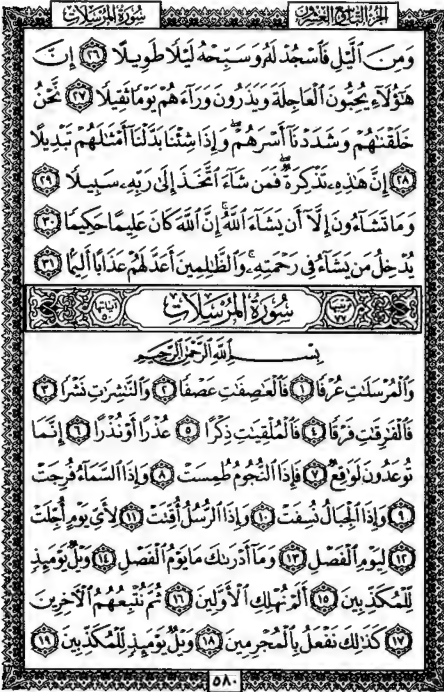 سُورَةُ المُرْسَلَاتِ الجُزْءُ التَّاسِعُ وَالعِشْرُونَ
وَمِنَ ٱلَّيۡلِ فَٱسۡجُدۡ لَهُۥ وَسَبِّحۡهُ لَيۡلٗا طَوِيلًا ٢٦ إِنَّ
هَٰٓؤُلَآءِ يُحِبُّونَ ٱلۡعَاجِلَةَ وَيَذَرُونَ وَرَآءَهُمۡ يَوۡمٗا ثَقِيلٗا ٢٧ نَّحۡنُ
خَلَقۡنَٰهُمۡ وَشَدَدۡنَآ أَسۡرَهُمۡۖ وَإِذَا شِئۡنَا بَدَّلۡنَآ أَمۡثَٰلَهُمۡ تَبۡدِيلًا
٢٨ إِنَّ هَٰذِهِۦ تَذۡكِرَةٞۖ فَمَن شَآءَ ٱتَّخَذَ إِلَىٰ رَبِّهِۦ سَبِيلٗا ٢٩
وَمَا تَشَآءُونَ إِلَّآ أَن يَشَآءَ ٱللَّهُۚ إِنَّ ٱللَّهَ كَانَ عَلِيمًا حَكِيمٗا ٣٠
يُدۡخِلُ مَن يَشَآءُ فِي رَحۡمَتِهِۦۚ وَٱلظَّٰلِمِينَ أَعَدَّ لَهُمۡ عَذَابًا أَلِيمَۢا ٣١
ترتيبها ٧٧ سُورَةُ المُرْسَلَاتِ آياتها ٥٠
بِسۡمِ ٱللَّهِ ٱلرَّحۡمَٰنِ ٱلرَّحِيمِ
وَٱلۡمُرۡسَلَٰتِ عُرۡفٗا ١ فَٱلۡعَٰصِفَٰتِ عَصۡفٗا ٢ وَٱلنَّٰشِرَٰتِ نَشۡرٗا ٣
فَٱلۡفَٰرِقَٰتِ فَرۡقٗا ٤ فَٱلۡمُلۡقِيَٰتِ ذِكۡرًا ٥ عُذۡرًا أَوۡ نُذۡرًا ٦ إِنَّمَا
تُوعَدُونَ لَوَٰقِعٞ ٧ فَإِذَا ٱلنُّجُومُ طُمِسَتۡ ٨ وَإِذَا ٱلسَّمَآءُ فُرِجَتۡ
٩ وَإِذَا ٱلۡجِبَالُ نُسِفَتۡ ١٠ وَإِذَا ٱلرُّسُلُ أُقِّتَتۡ ١١ لِأَيِّ يَوۡمٍ أُجِّلَتۡ
١٢ لِيَوۡمِ ٱلۡفَصۡلِ ١٣ وَمَآ أَدۡرَىٰكَ مَا يَوۡمُ ٱلۡفَصۡلِ ١٤ وَيۡلٞ يَوۡمَئِذٖ
لِّلۡمُكَذِّبِينَ ١٥ أَلَمۡ نُهۡلِكِ ٱلۡأَوَّلِينَ ١٦ ثُمَّ نُتۡبِعُهُمُ ٱلۡأٓخِرِينَ
١٧ كَذَٰلِكَ نَفۡعَلُ بِٱلۡمُجۡرِمِينَ ١٨ وَيۡلٞ يَوۡمَئِذٖ لِّلۡمُكَذِّبِينَ ١٩
٥٨٠